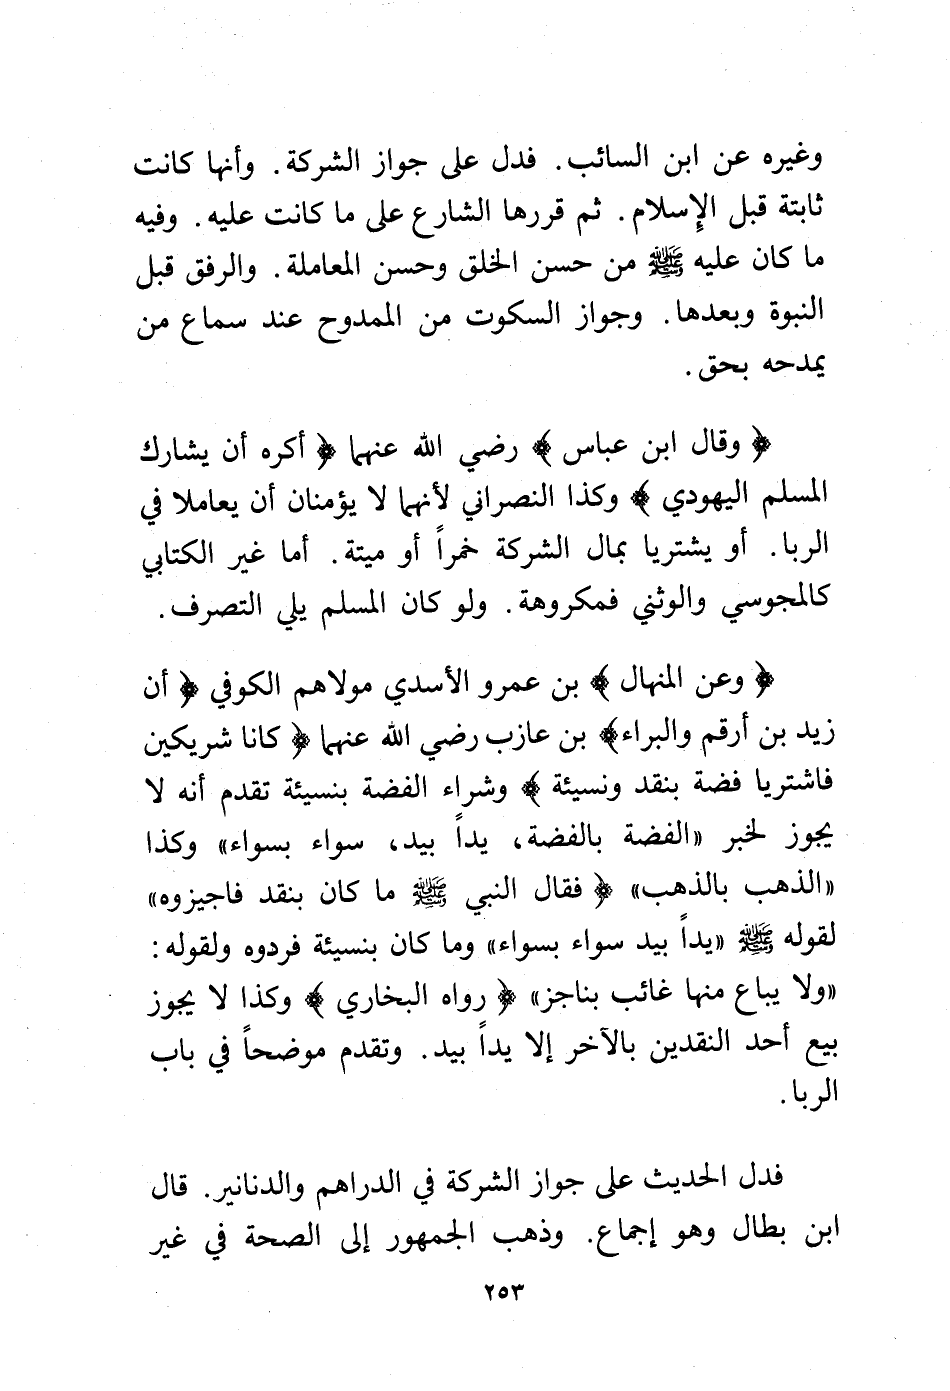 وغيره عن ابن السائب. فدل على جواز الشركة. وأنها كانت
ثابتة قبل الإسلام. ثم قررها الشارع على ما كانت عليه. وفيه
ما كان عليه ﷺ من حسن الخلق وحسن المعاملة. والرفق قبل
النبوة وبعدها. وجواز السكوت من الممدوح عند سماع من
يمدحه بحق.
﴿ وقال ابن عباس ﴾ رضي الله عنهما ﴿ أكره أن يشارك
المسلم اليهودي ﴾ وكذا النصراني لأنهما لا يؤمنان أن يعاملا في
الربا. أو يشتريا بمال الشركة خمراً أو ميتة. أما غير الكتابي
كالمجوسي والوثني فمكروهة. ولو كان المسلم يلي التصرف.
﴿ وعن المنهال ﴾ بن عمرو الأسدي مولاهم الكوفي ﴿ أن
زيد بن أرقم والبراء﴾ بن عازب رضي الله عنهما ﴿ كانا شريكين
فاشتريا فضة بنقد ونسيئة ﴾ وشراء الفضة بنسيئة تقدم أنه لا
يجوز لخبر «الفضة بالفضة، يداً بيد، سواء بسواء» وكذا
«الذهب بالذهب» ﴿ فقال النبي ﷺ ما كان بنقد فاجيزوه»
لقوله ﷺ «يداً بيد سواء بسواء» وما كان بنسيئة فردوه ولقوله:
«ولا يباع منها غائب بناجز» ﴿ رواه البخاري ﴾ وكذا لا يجوز
بيع أحد النقدين بالآخر إلا يداً بيد. وتقدم موضحاً في باب
الربا.
فدل الحديث على جواز الشركة في الدراهم والدنانير. قال
ابن بطال وهو إجماع. وذهب الجمهور إلى الصحة في غير
٢٥٣